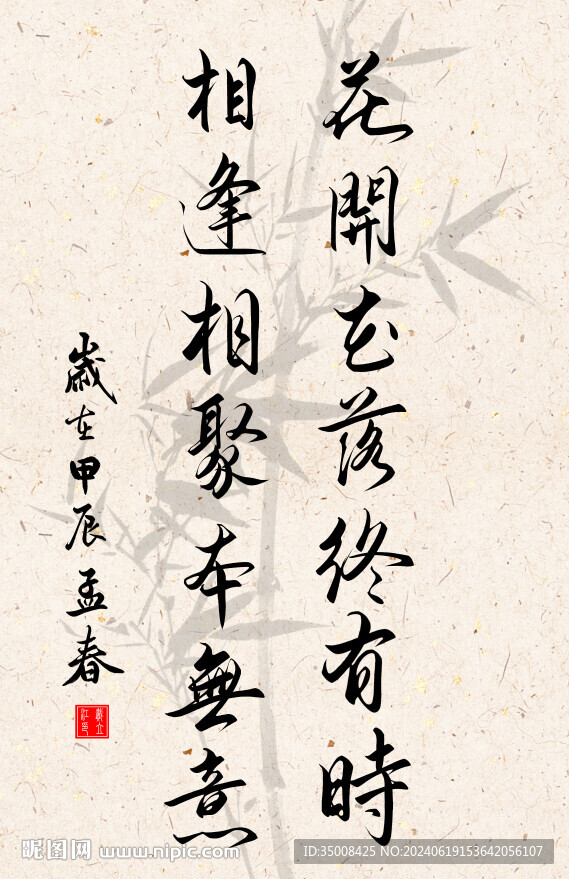 花開花落終有時
相逢相聚本無意
歲在甲辰孟春
昵图网 www.nipic.com
ID:35008425 NO:20240619153642056107